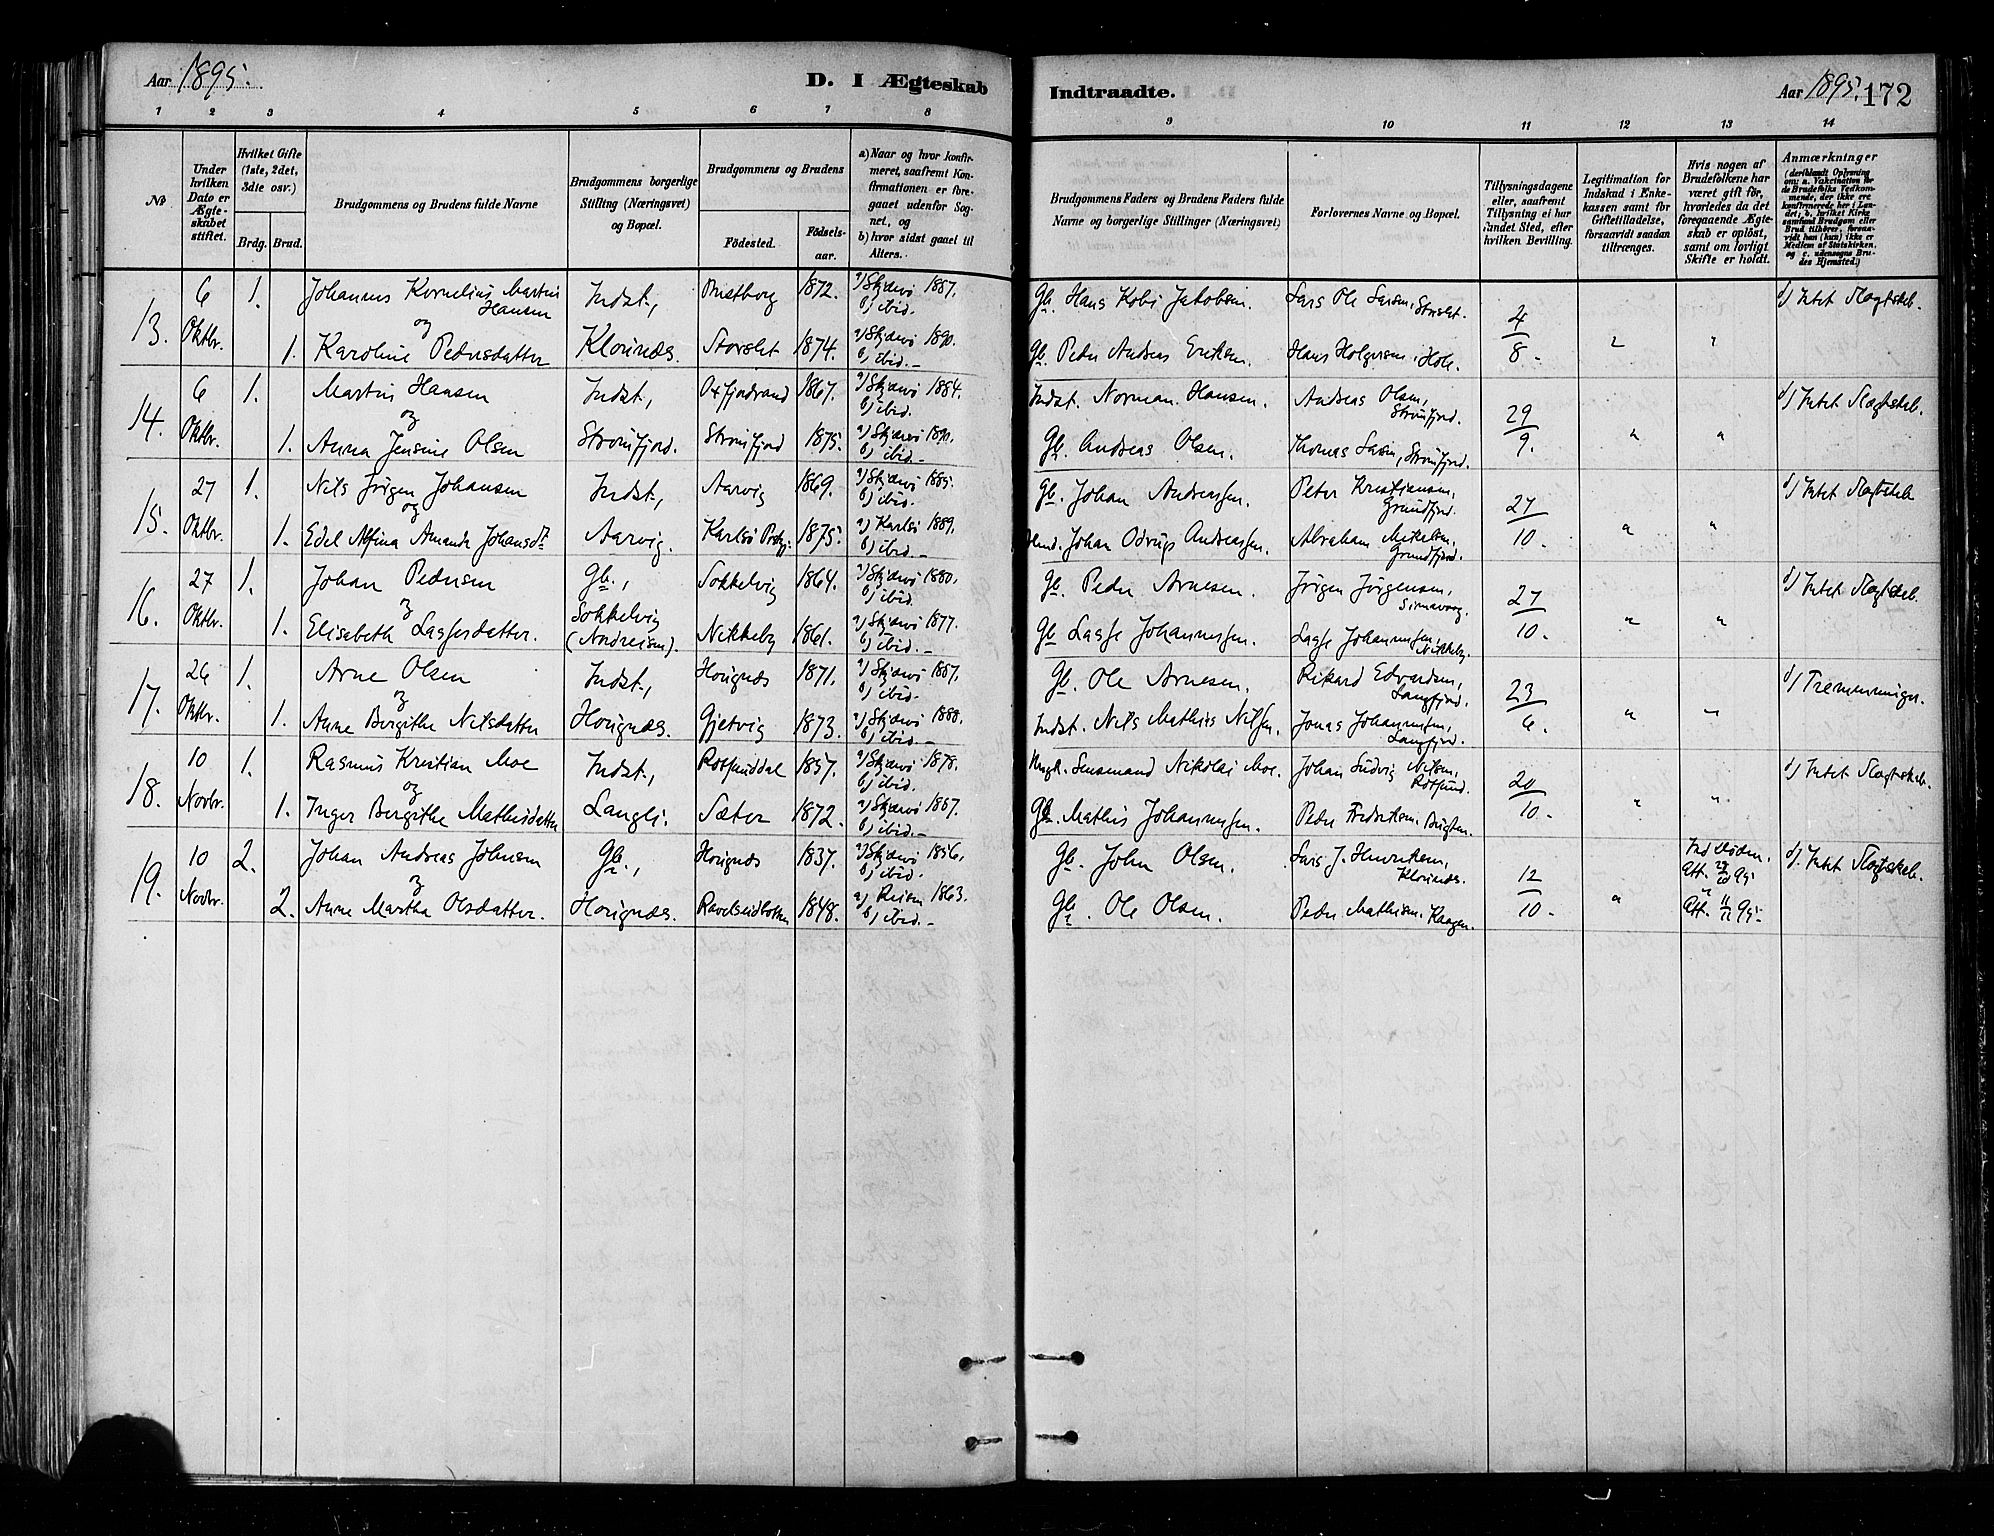 Aar 1895.
D. I Ægteskab
Indtraadte.
Aar 1895. 172
1 2 3 4 5 6 7 8 9 10 11 12 13 14
No
Under hvilken Dato er Ægteskabet stiftet.
Hvilket Gifte (1ste, 2det, 3die osv.)
Brdg. Brud.
Brudgommens og Brudens fulde Navne
Brudgommens borgerlige Stilling (Næringsvei) og Bopæl.
Brudgommens og Brudens
Fødested. Fødsels-aar.
a) Naar og hvor konfirmeret, saafremt Konfirmationen er foregaaet udenfor Sognet, og
b) hvor sidst gaaet til Alters.
Brudgommens Faders og Brudens Faders fulde Navne og borgerlige Stillinger (Næringsvei)
Forlovernes Navne og Bopæl.
Tillysningsdagene eller, saafremt Tillysning ei har fundet Sted, efter hvilken Bevilling.
Legitimation for Indskud i Enkekassen samt for Giftetilladelse, forsaavidt saadan tiltrænges.
Hvis nogen af Brudefolkene har været gift før, hvorledes da det foregaaende Ægteskab er opløst, samt om lovligt Skifte er holdt.
Anmærkninger
13. 6 Oktbr. 1. Johannes Kornelius Martin Hansen Indst., 1872. a) Skjærvø 1887. b) ibid. Gb. Hans Kobi Jakobsen. Lars Ole Larsen, Storslet. 4/8. d) Intet Slægtskab.
og
1. Karoline Pedersdatter Klovnæs. Storslet 1874. a) Skjærvø 1890. b) ibid. Gb. Peder Andreas Eriksen. Hans Holgersen, Hole.
14. 6 Oktbr. 1. Martin Hansen Indst., Oxfjordvand 1867. a) Skjærvø 1884. b) ibid. Indst. Norman Hansen. Andreas Olsen, Strømfjord. 29/9. d) Intet Slægtskab.
og
1. Anna Jensine Olsen Strømfjord. Strømfjord 1875. a) Skjærvø 1890. b) ibid. Gb. Andreas Olsen. Thomas Larsen, Strømfjord.
15. 27 Oktbr. 1. Nils Jørgen Johansen Indst., Aarvig 1869. a) Skjærvø 1885. b) ibid. Gb. Johan Andreassen. Peter Kristiansen, Grundfjord. 27/10. d) Intet Slægtskab
og
1. Edel Alfina Amanda Johansdt. Aarvig. Karlsø Prstgj. 1875. a) Karlsø 1889. b) ibid. Johan Odrup Andreassen. Abraham Mikalsen, Grundfjord.
16. 27 Oktbr. 1. Johan Pedersen Gb., Sokkelvig 1864. a) Skjærvø 1880. b) ibid. Gb. Peder Arnesen. Jørgen Jørgensen, 27/10. d) Intet Slægtskab.
og
1. Elisabeth Lassesdatter. Sokkelvig (Nordreisen). Nikkeby 1861. a) Skjærvø 1877. b) ibid. Gb. Lasse Johannessen. Lasse Johannessen, Nikkeby.
17. 26 Oktbr. 1. Arne Olsen Indst., Houignæs 1871. a) Skjærvø 1887. b) ibid. Gb. Ole Arnesen. Rikard Edvardsen, Langfjord. 23/6. d) Tremenninger.
og
1. Anne Bergithe Nilsdatter Houignæs. Gjetvig 1873. a) Skjærvø 1888. b) ibid. Indst. Nils Mathis Nilsen. Jonas Johannessen, Langfjord.
18. 10 Novbr. 1. Rasmus Kristian Moe Indst., Rotsunddal 1857. a) Skjærvø 1878. b) ibid. Nikolai Moe. Johan Ludvig Nilsen, Rotsund. 20/10. d) Intet Slægtskab.
og
1. Inger Bergithe Mathisdatter Langli. Sæter 1872. a) Skjærvø 1887. b) ibid. Gb. Mathis Johannessen. Peder Fredriksen, Bugten.
19. 10 Novbr. 2. Johan Andreas Johnsen Gb., Houignæs 1837. a) Skjærvø 1856. b) ibid. Gb. John Olsen. Lars J. Henriksen, Klovnæs. 12/10. Ved Døden. Att. 23/10 95 d) Intet Slægtskab.
og
2. Anne Martha Olsdatter. Houignæs. Ravelseidbotten 1848. a) Reisen 1863. b) ibid. Gb. Ole Olsen. Peder Mathisen, Kaagen. Att. 11/11 95